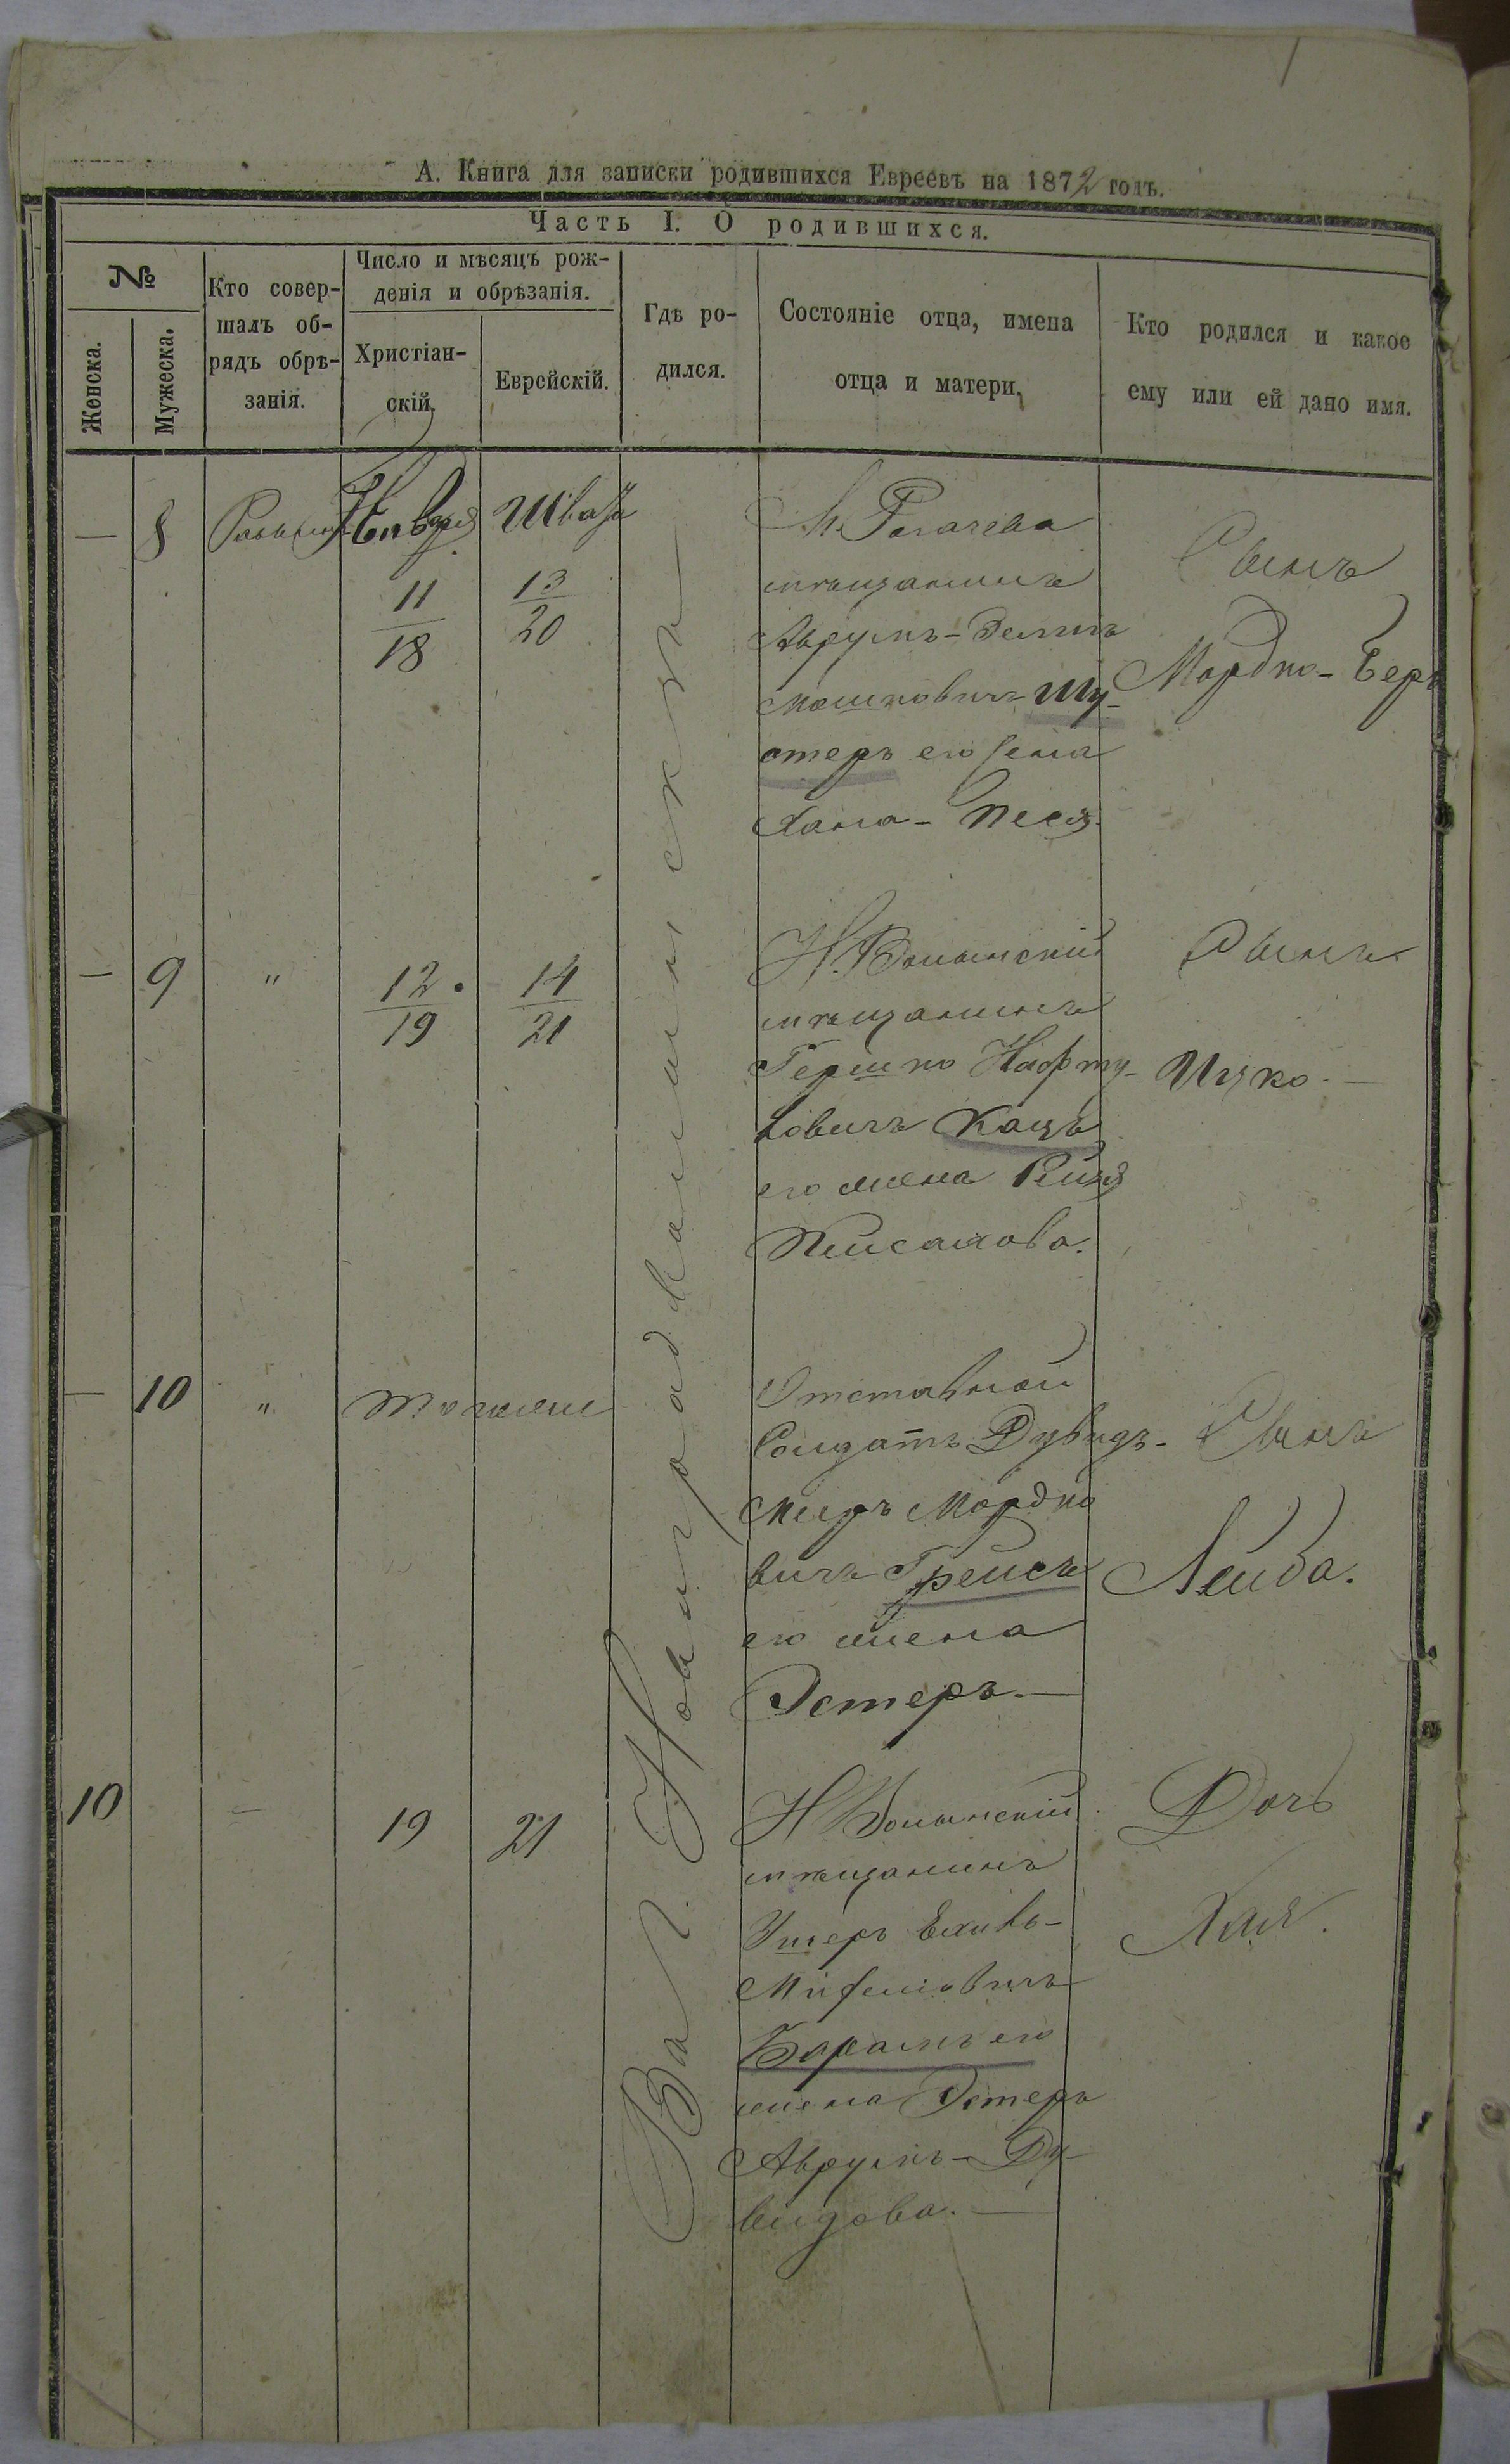 А. Книга для записки родившихся Евреевъ на 1872 годъ.
Часть I. О родившихся.
№
Женска.
Мужеска.
Кто совер-
шалъ об-
рядъ обрѣ-
занія.
Число и мѣсяцъ рож-
денія и обрѣзанія.
Христіан-
скій.
Еврейскій.
Гдѣ ро-
дился.
Состояніе отца, имена
отца и матери.
Кто родился и какое
ему или ей дано имя.
Въ г. Новиградволынскъ
— 8
Января
Швата
11
18
13
20
М. Рогачева
мѣщанинъ
Аврумъ-Зелигъ
Мошковичъ Шу-
стеръ его жена
Хана-Песя.
Сынъ
Мордко-Беръ
— 9 "
12.
19
14
21
Н. Волынскій
мѣщанинъ
Гершко Нафту-
ловичъ Кацъ
его жена Рейзя
Пейсахова.
Сынъ
Ицко.—
— 10 "
тогоже
Отставной
Солдатъ Дувидъ-
Меиръ Мордко
вичъ Грейсъ
его жена
Эстеръ.—
Сынъ
Лейба.
10 —
19
21
Н Волынскій
мѣщанинъ
Ушеръ Ехиль-
Михелювичъ
его
жена Эстеръ
Аврумъ-Ду-
видова.—
Дочь
Хая.